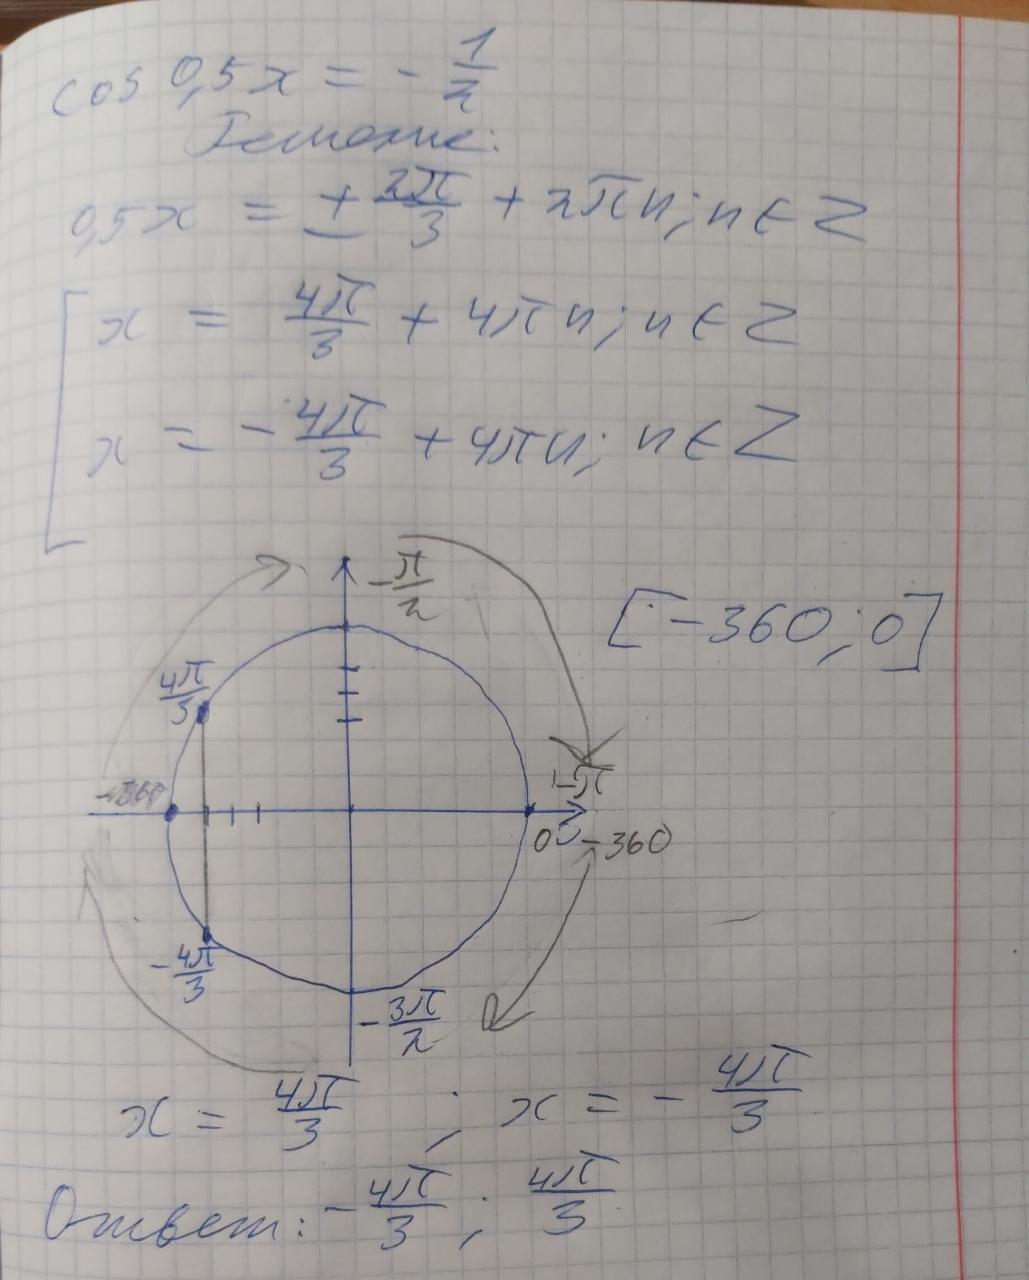 cos 0,5x = - 1/2
Решение:
0,5x = ± 2π/3 + 2πn; n ∈ Z
x = 4π/3 + 4πn; n ∈ Z
x = - 4π/3 + 4πn; n ∈ Z
- π/2
[-360; 0]
4π/3
-π
0 -360
- 4π/3
- 3π/2
x = 4π/3 ; x = - 4π/3
Ответ: - 4π/3 ; 4π/3